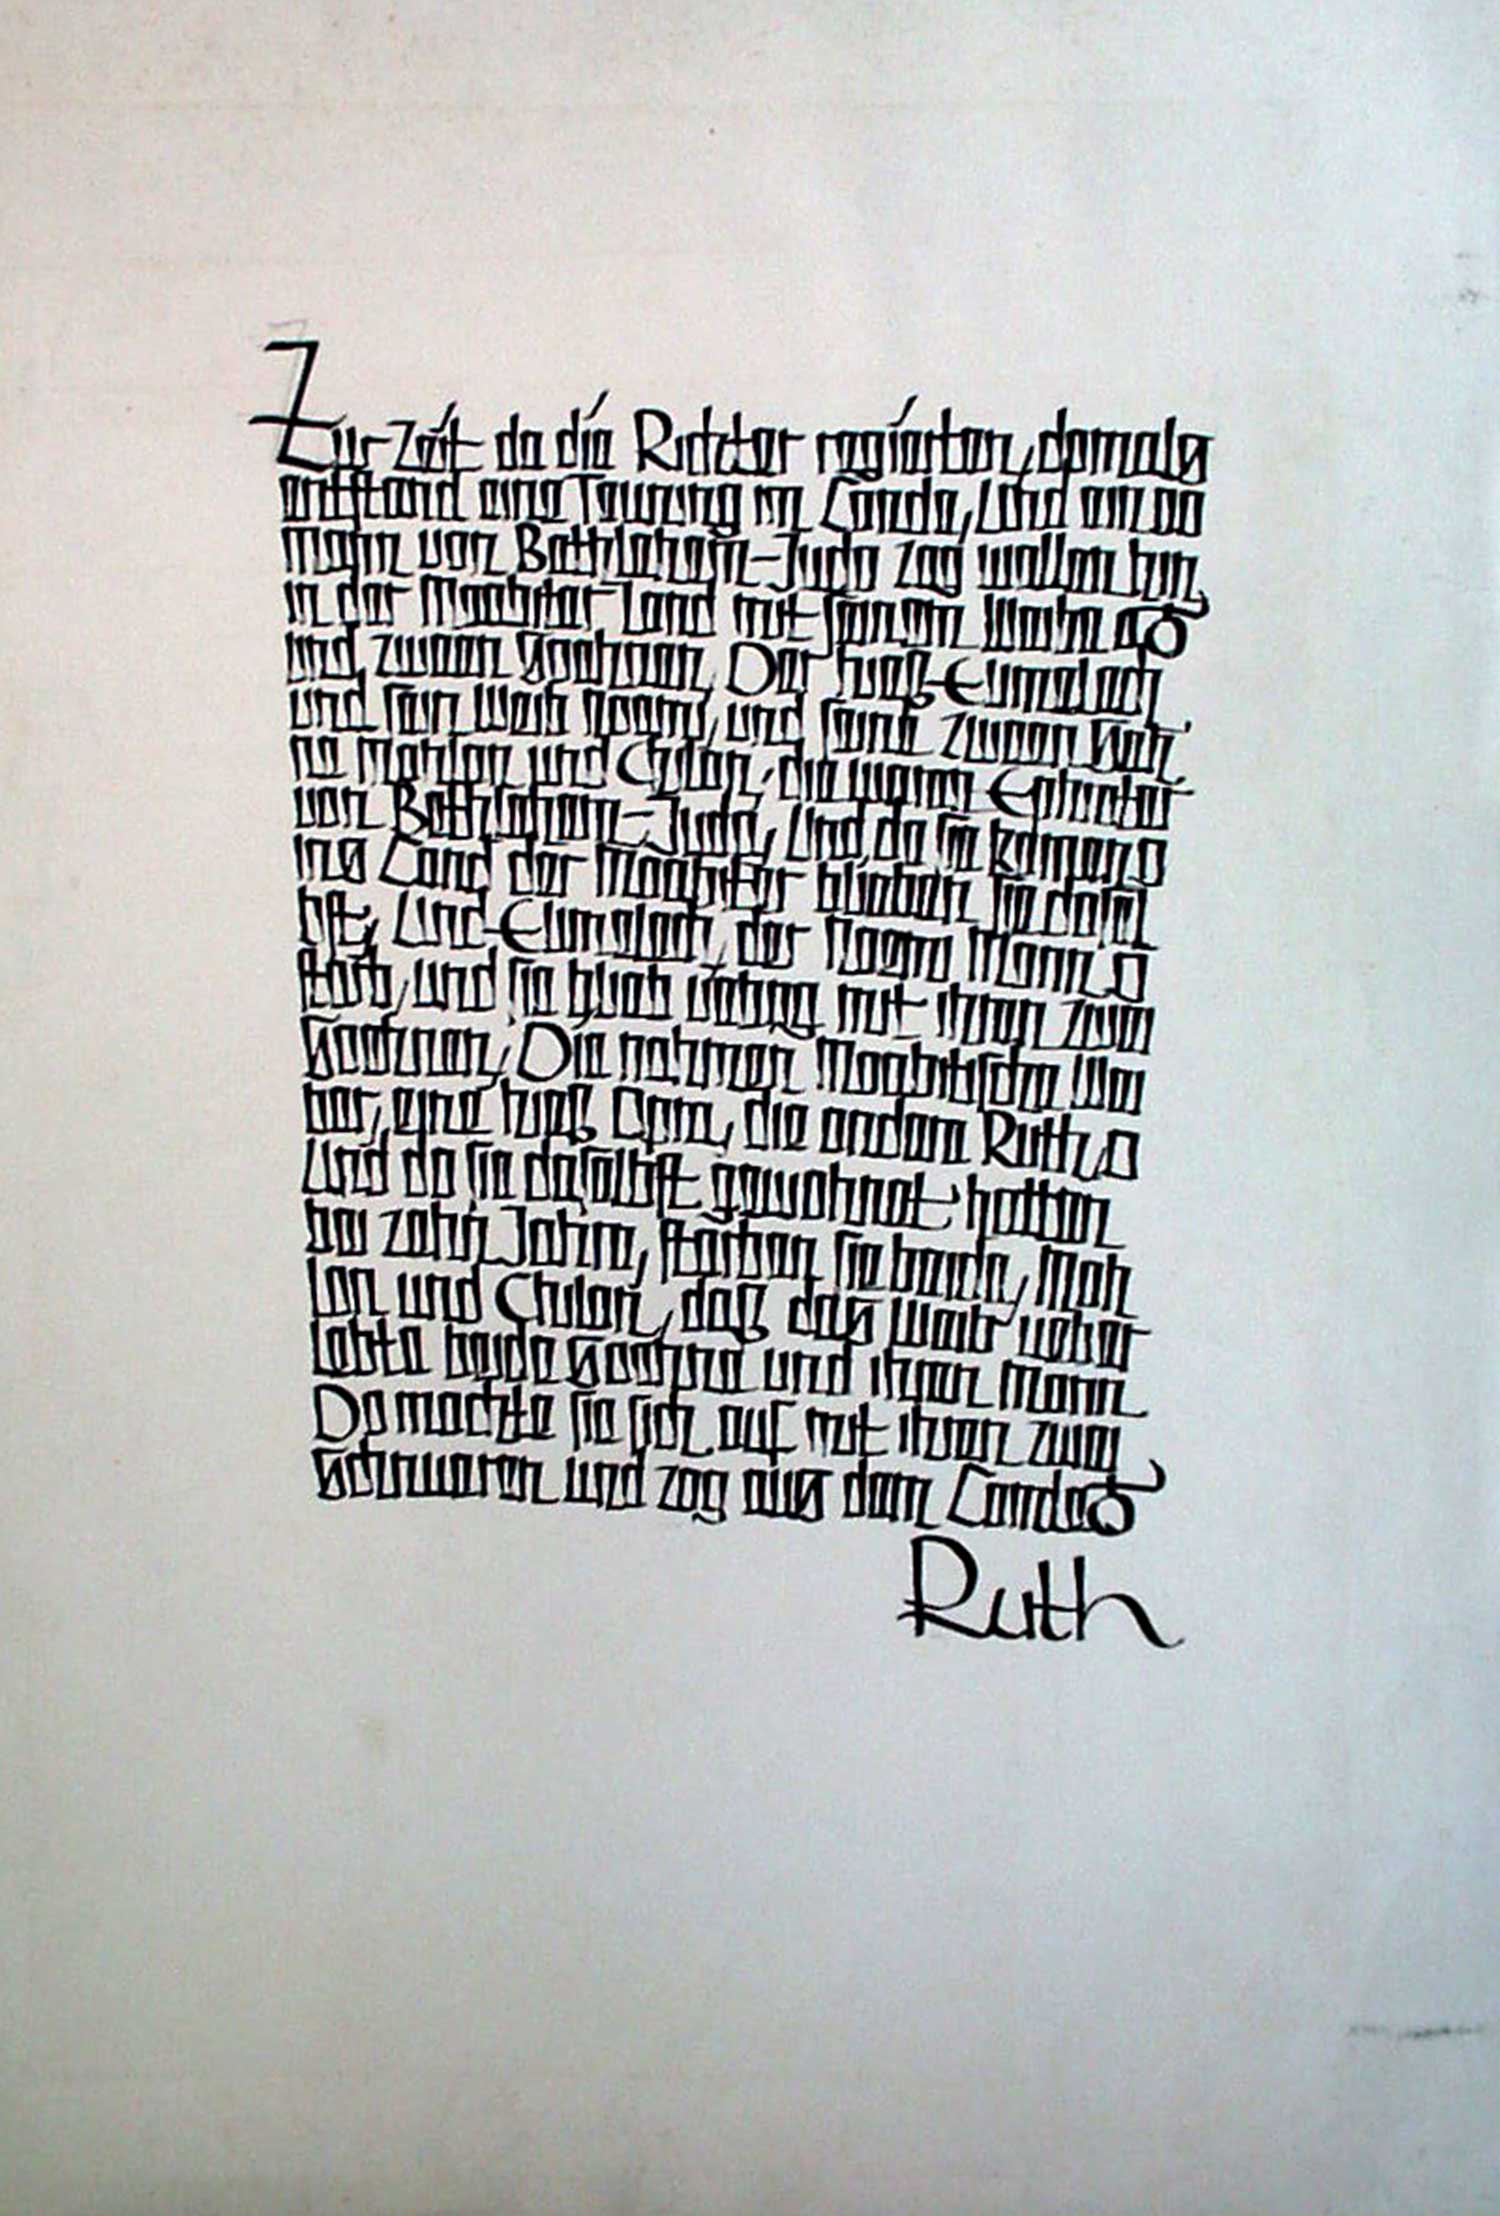 Zur Zeit da die Richter regierten, damals
entstand eine Teurung im Lande, Und ein
mann von Bethlehem-Juda zog wallen hin
in der Moabiter Land mit seinem Weibe
und zween Soehnen, Der hieß Elimelech
und sein Weib Noomi, und seine zween Söh
ne Mahlon und Chilon, die waren Ephrater
von Bethlehem-Juda, Und da sie kamen
ins Land der Moabiter blieben sie dasel
bst, Und Elimelech, der Noomi Mann
starb, und sie blieb übrig mit ihren zwei
Soehnen, Die nahmen Moabitische Wei
ber, eine hieß Orpa, die andere Ruth,
Und da sie daselbst gewohnet hatten
bei zehn Jahre, starben sie beide, Mah
lon und Chilon, daß das Weib ueber
lebte beide Soehne und ihren Mann
Da machte sie sich auf mit ihren zwei
Schnueren und zog aus dem Lande
Ruth